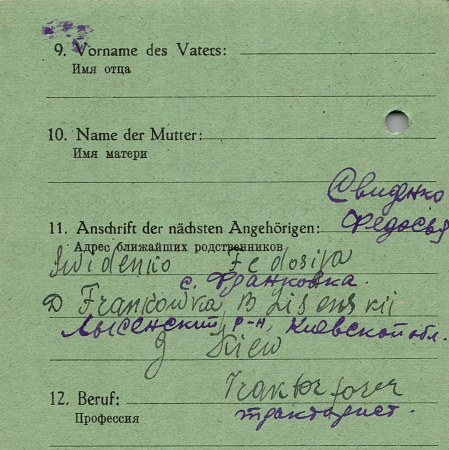 9. Vorname des Vaters:
Имя отца
10. Name der Mutter:
Имя матери
Свиденко
11. Anschrift der nächsten Angehörigen: Федосья
Адрес ближайших родственников
Swidenko Fedosija
с. Франковка.
D Frankowka B Lisenskii
Лысенский р-н, Киевской обл.
g Kiew
12. Beruf: Traktorforer
Профессия тракторист.